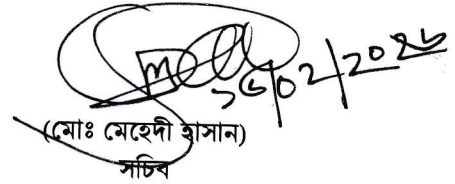 ১৫/০২/২০২৬
(মোঃ মেহেদী হাসান)
সচিব